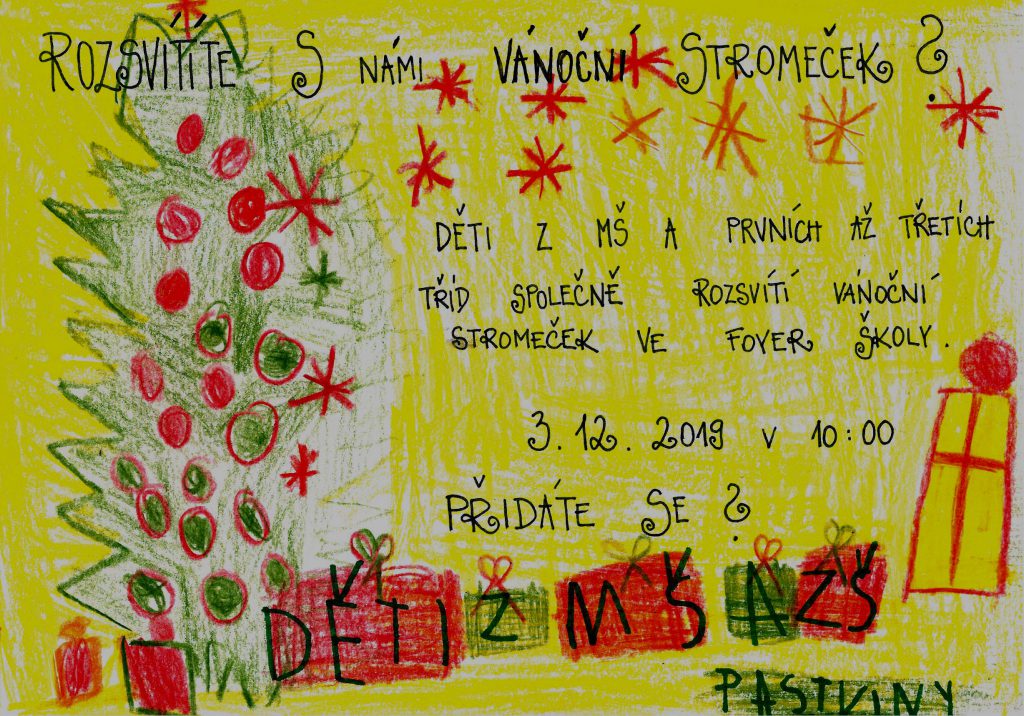 ROZSVÍTÍTE S NÁMI VÁNOČNÍ STROMEČEK ?
DĚTI Z MŠ A PRVNÍCH AŽ TŘETÍCH
TŘÍD SPOLEČNĚ ROZSVÍTÍ VÁNOČNÍ
STROMEČEK VE FOYER ŠKOLY.
3.12.2019 V 10:00
PŘIDÁTE SE ?
DĚTI Z MŠ A ZŠ
PASTVINY